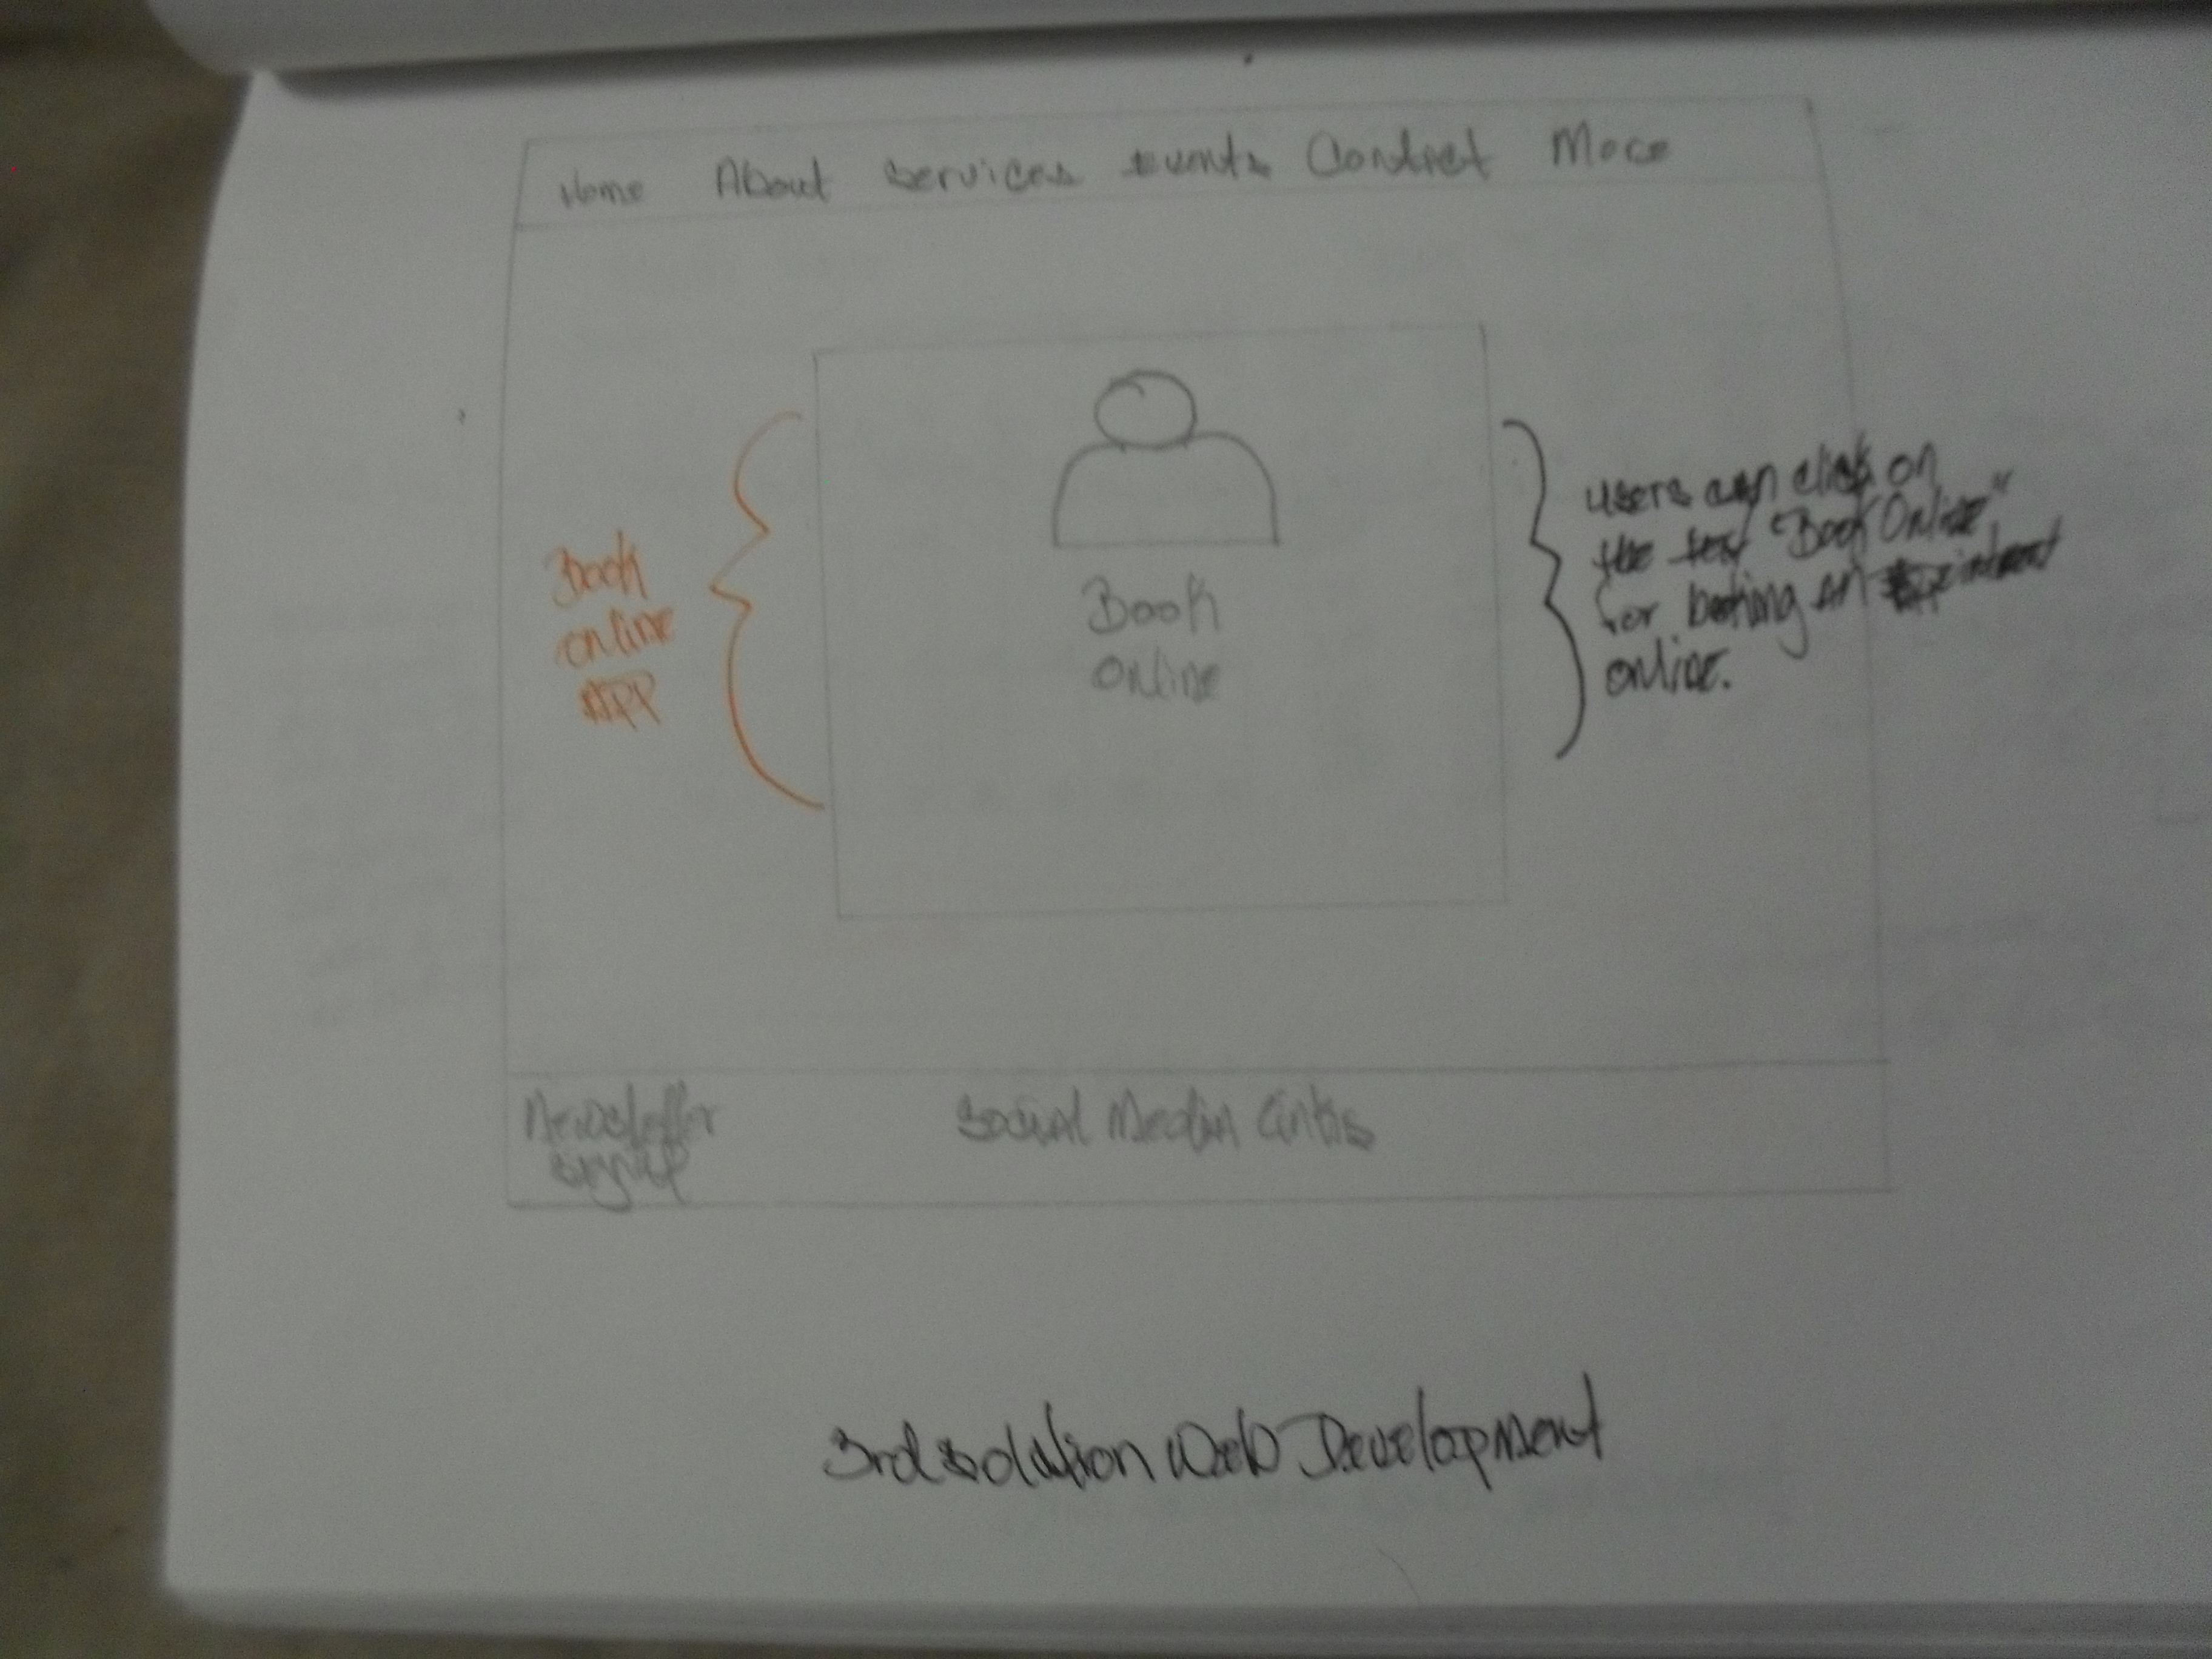 Home About Services Events Contact More
Book
online
APP
Book
Online
users can click on
the text "Book Online"
for booking an appointment
online.
Newsletter
signup
Social Media Links
3rd solution Web Development